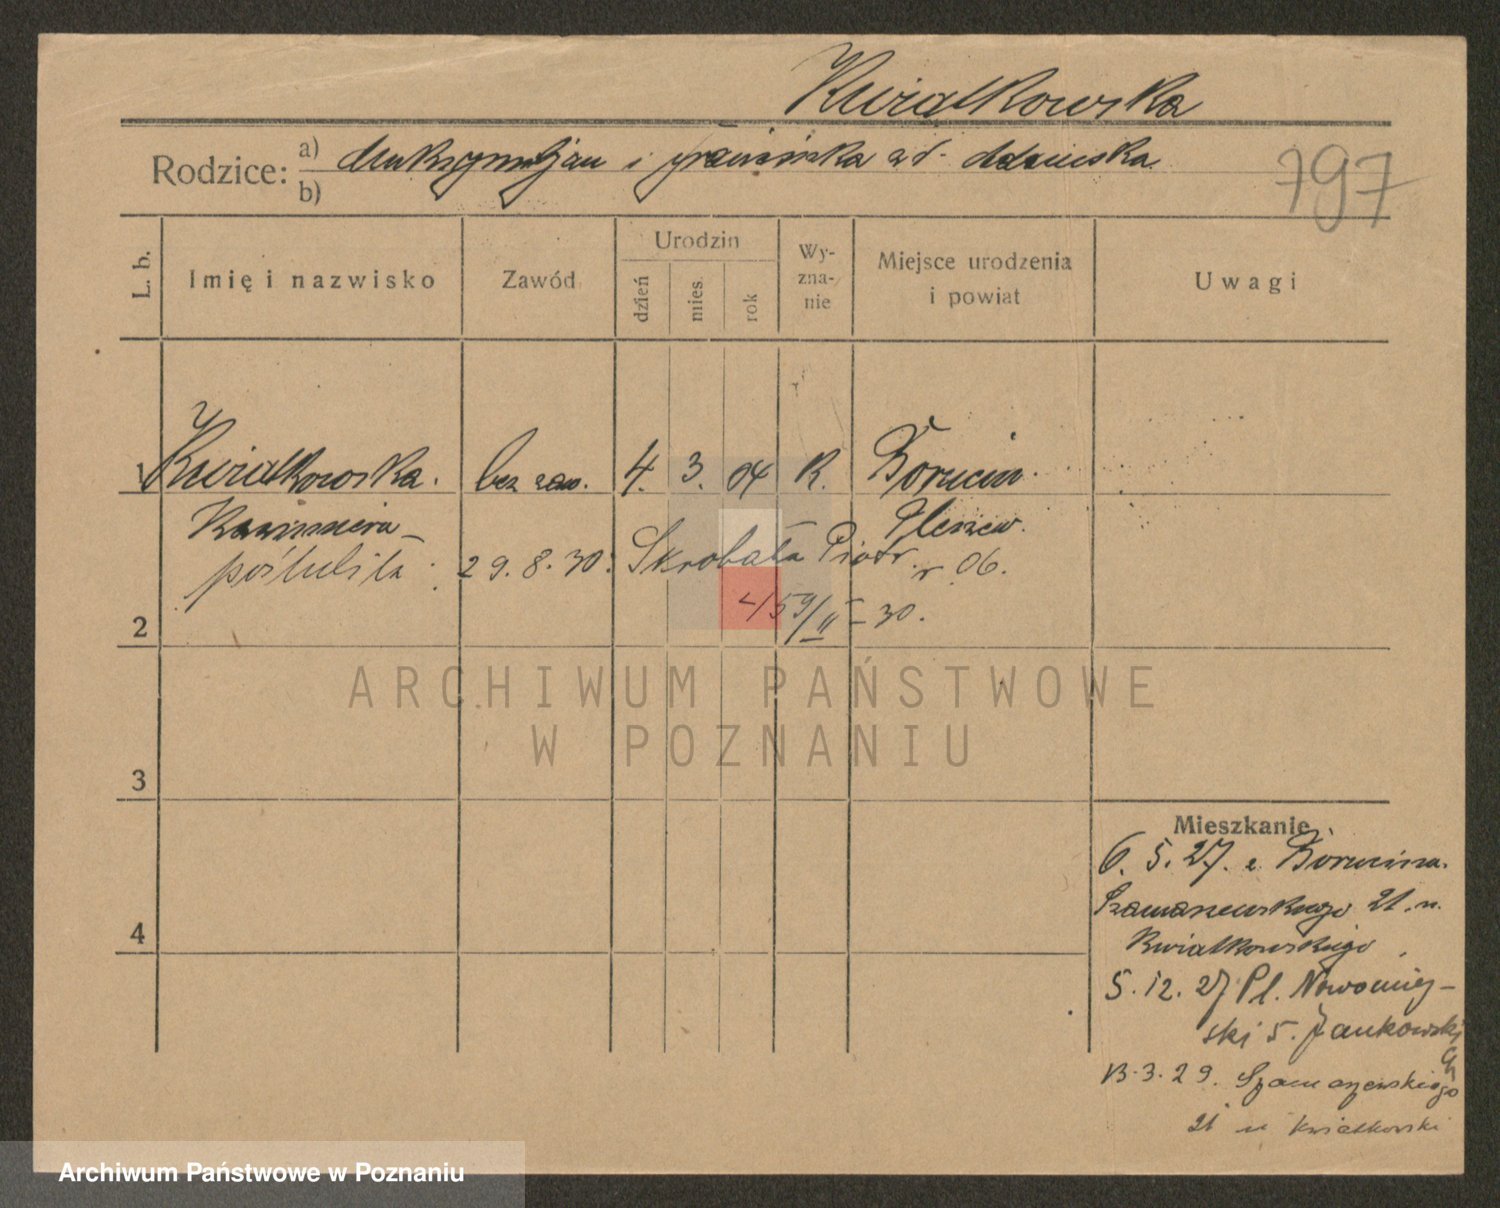 Kwiatkowska
Rodzice: a) Maksymiljan i Franciszka zd. Adamska
b)
797
L. b.
Imię i nazwisko
Zawód
Urodzin
dzień
mies.
rok
Wy-
zna-
nie
Miejsce urodzenia
i powiat
Uwagi
1 Kwiatkowska. bez zaw. 4. 3. 04 K. Borucin.
Kazimiera Pleszew.
poślubiła 29. 8. 30. Skrobała Piotr. r 06.
2 4/59/II - 30.
ARCHIWUM PAŃSTWOWE
W POZNANIU
3
Mieszkanie
6. 5. 27. z Borucina.
Szamarzewskiego 21. u.
4 Kwiatkowskiego
5. 12. 27 Pl. Nowomiej-
ski 5. Jankowski
13. 3. 29. Szamarzewskiego
21 u Kwiatkowski
Archiwum Państwowe w Poznaniu